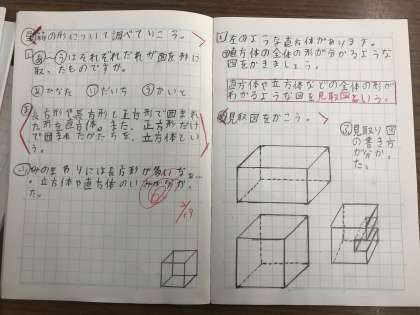 箱の形について調べていこう。
1 あ〜うはそれぞれだれが図を形に
取ったものですか。
あかなた いだいち うかいと
長方形や長方形と正方形で囲まれ
た形を直方体。また、正方形だけ
で囲まれたかたちを、立方体とい
う。
みのまわりには長方形が多いな
立方体や直方体のいみが分かっ
た。
6
2/19
2 左のような直方体があります。
直方体の全体の形が分かるような
図をかきましょう。
直方体や立方体などの全体の形が
わかるような図を見取図という。
見取図をかこう。
ふ 見取り図
の書き方
が分かっ
た。